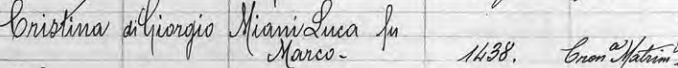 Cristina di Giorgio Miani Luca fu
Marco - 1438. Cron^a Matrim